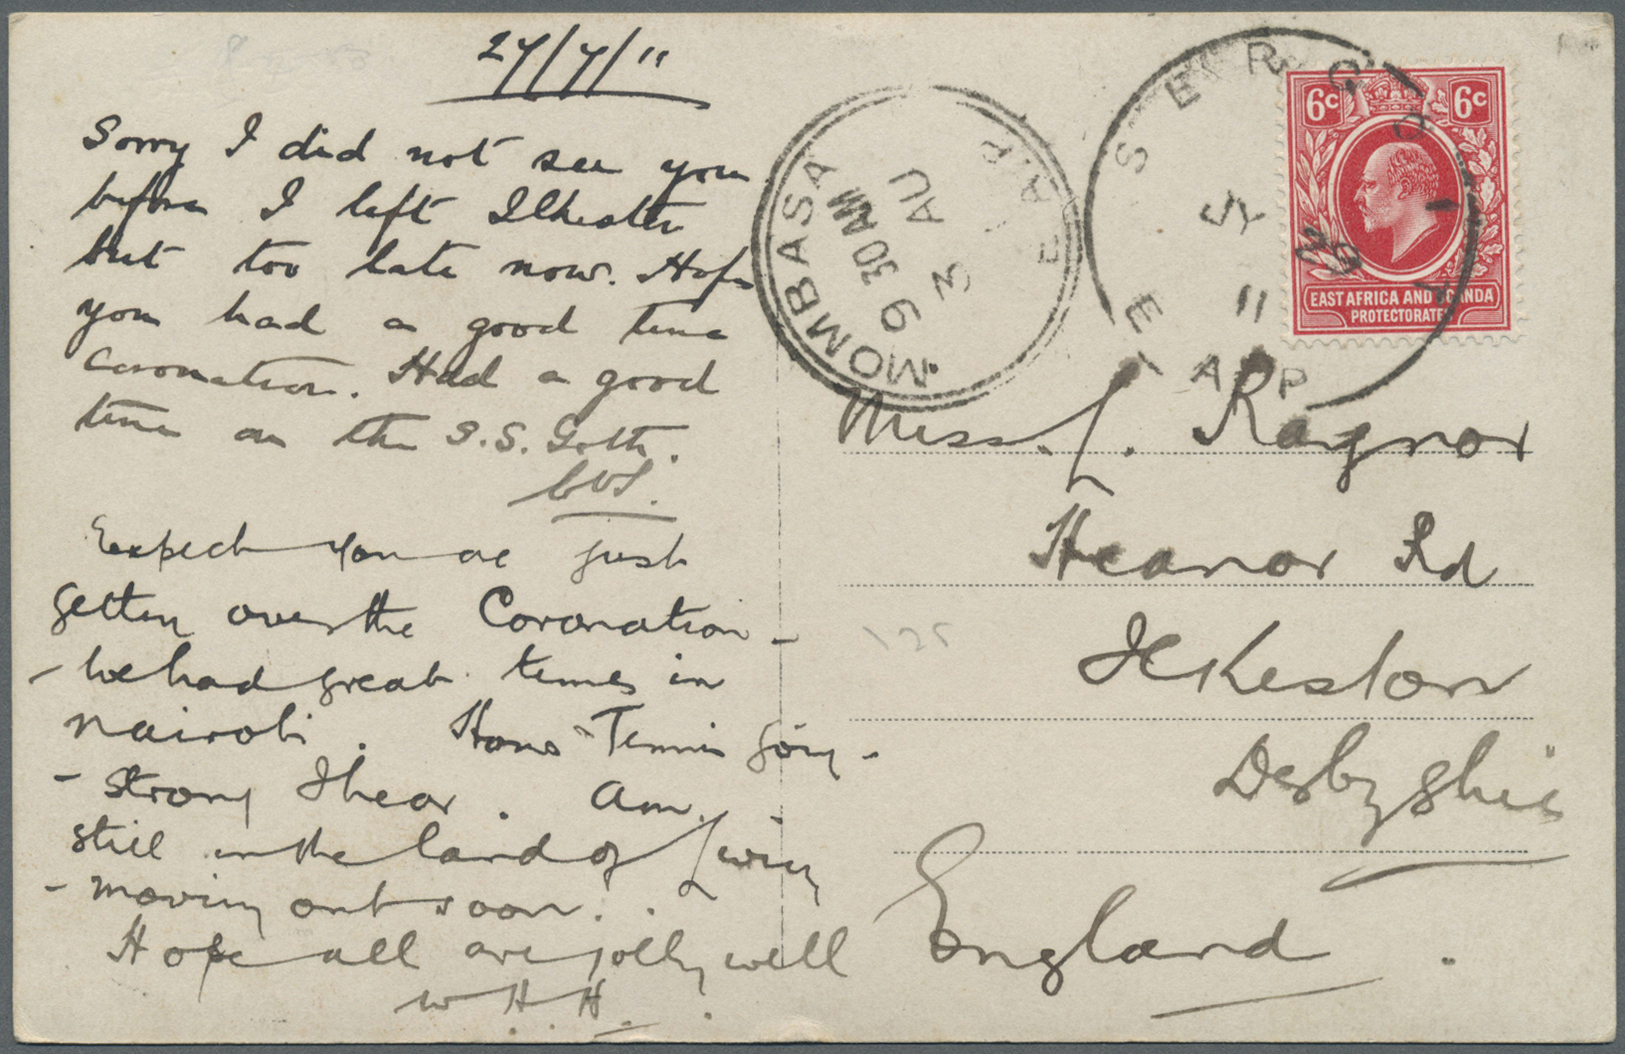 27/7/11
Sorry I did not see you
before I left Ilkeston
but too late now. Hope
you had a good time
Coronation. Had a good
time on the S.S. Goth.
Expect you are just
getting over the Coronation -
- We had great times in
Nairobi. Hows Tennis going -
- Strong I hear. Am
still in the land of living
- moving out soon.
Hope all are jolly well
W.H.H.
MOMBASA
9 30 AM
3 AU
E.A.P.
6c 6c
EAST AFRICA AND UGANDA
PROTECTORATES
11
Miss. J. Raynor
Heanor Rd
Ilkeston
Derbyshire
England.
125